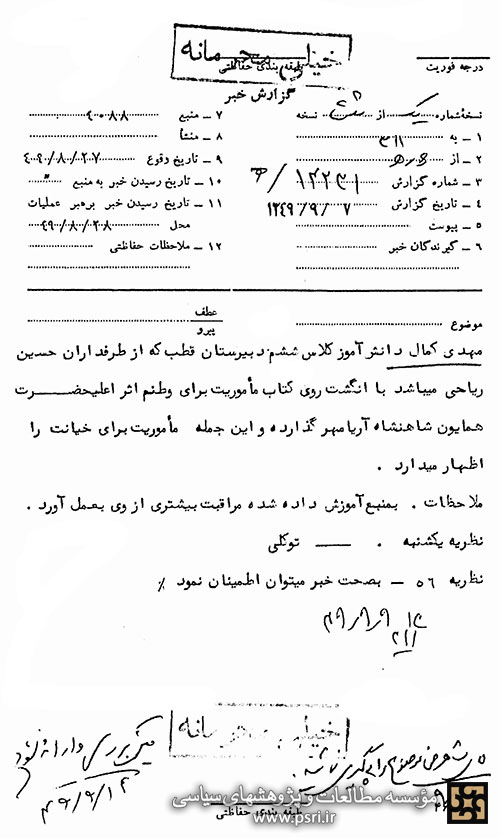 خیلی محرمانه
درجه فوریت
طبقه بندی حفاظتی
گزارش خبر
نسخهٔ شماره یک از نسخه
۱ – به ۳۱۱
۲ – از
۳ – شماره گزارش ۱۲۲۳۱/
۴ – تاریخ گزارش ۱۳۴۹/۹/۷
۵ – پیوست
۶ – گیرندگان خبر
۷ – منبع ۴۰۸۸
۸ – منشأ
۹ – تاریخ وقوع ۴۹/۸/۲۷
۱۰ – تاریخ رسیدن خبر به منبع
۱۱ – تاریخ رسیدن خبر برهبر عملیات
محل ۴۹/۸/۲۸
۱۲ – ملاحظات حفاظتی
موضوع
عطف
پیرو
مهدی کمال دانش آموز کلاس ششم دبیرستان قطب که از طرفداران حسین
ریاحی میباشد با انگشت روی کتاب مأموریت برای وطنم اثر اعلیحضرت
همایون شاهنشاه آریامهر گذارده و این جمله مأموریت برای خیانت را
اظهار میدارد .
ملاحظات . بمنبع آموزش داده شده مراقبت بیشتری از وی بعمل آورد .
نظریه یکشنبه . – توکلی
نظریه ۵۶ – بصحت خبر میتوان اطمینان نمود ٪
خیلی محرمانه
طبقه بندی حفاظتی
مؤسسه مطالعات و پژوهشهای سیاسی
www.psri.ir